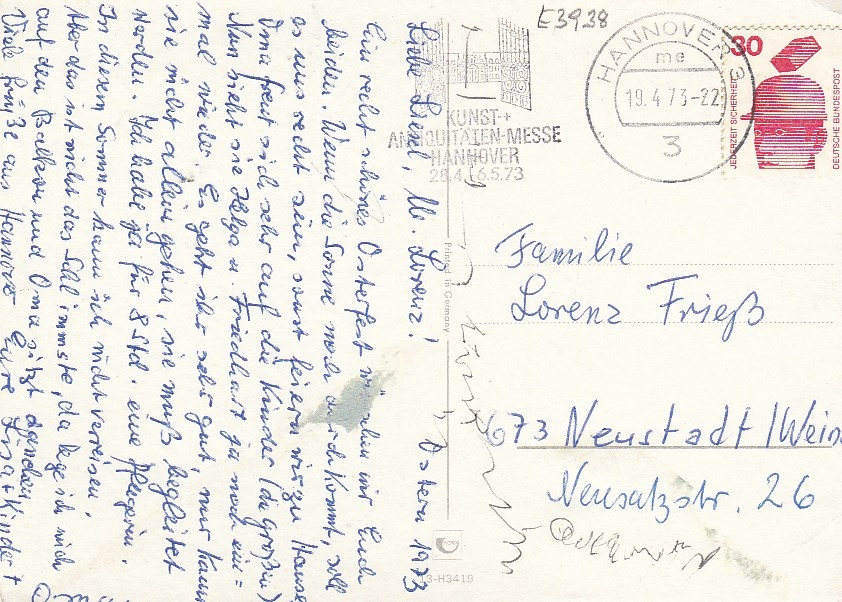 E3938
HANNOVER 3
me
19.4.73-22
3
KUNST-+
ANTIQUITÄTEN-MESSE
HANNOVER
28.4.-6.5.73
30
JEDERZEIT SICHERHEIT
DEUTSCHE BUNDESPOST
Ostern 1973
Liebe Liesel, lb. Lorenz!
Ein recht schönes Osterfest wünschen wir Euch
beiden. Wenn die Sonne noch durchkommt, soll
es uns recht sein, sonst feiern wir zu Hause
Oma freut sich sehr auf die Kinder (die großen)
Nun sieht sie Helga u. Friedhart ja noch ein=
mal wieder. Es geht ihr sehr gut, nur kann
sie nicht allein gehen, sie muß begleitet
werden. Ich habe ja für 8 Std. eine Pflegerin.
In diesem Sommer kann ich nicht verreisen.
Aber das ist nicht das Schlimmste, da lege ich mich
auf den Balkon und Oma sitzt daneben
Viele Grüße aus Hannover Eure Lisa + Kinder +
Printed in Germany
13-H3419
Familie
Lorenz Frieß
673 Neustadt/Wein
Neusatzstr. 26